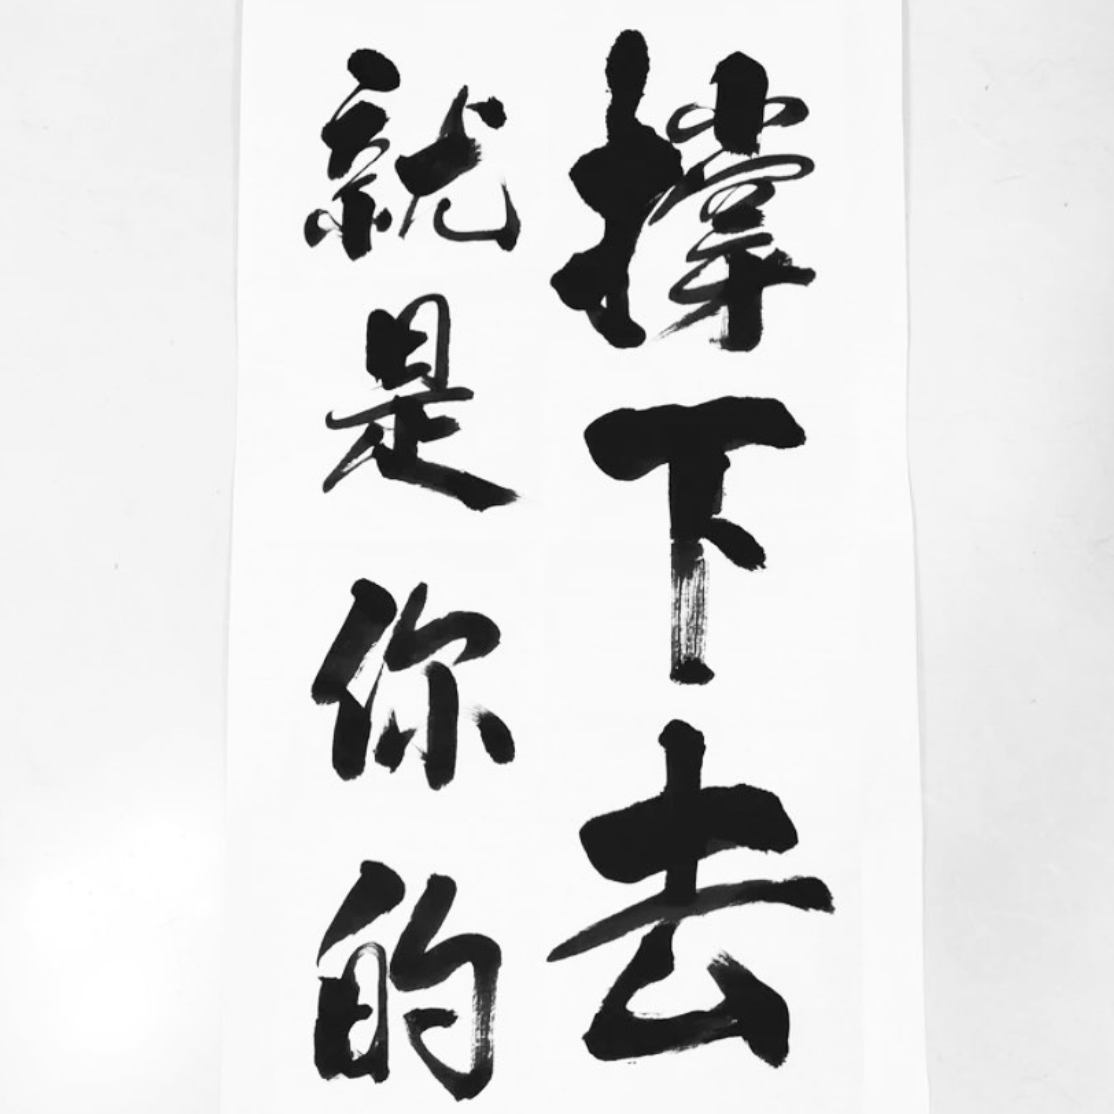 撑下去
就是你的